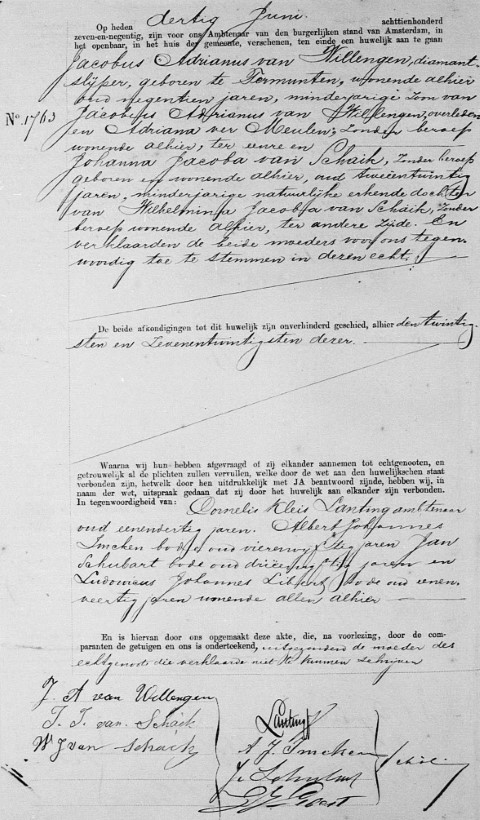 Op heden dertig Juni achttienhonderd
zeven-en-negentig, zijn voor ons Ambtenaar van den burgerlijken stand van Amsterdam, in
het openbaar, in het huis der gemeente, verschenen, ten einde een huwelijk aan te gaan
Jacobus Adrianus van Willengen, diamant-
slijper, geboren te Termunten, wonende alhier
oud negentien jaren, minderjarige zoon van
No. 1763 Jacobus Adrianus van Willengen, overleden
en Adriana ver Meulen, zonder beroep
wonende alhier, ter eenre en
Johanna Jacoba van Schaik, zonder beroep
geboren en wonende alhier, oud tweeëntwintig
jaren, minderjarige natuurlijke erkende dochter
van Wilhelmina Jacoba van Schaik, zonder
beroep wonende alhier, ter andere zijde. En
verklaarden de beide moeders voor ons tegen-
woordig toe te stemmen in dezen echt.
De beide afkondigingen tot dit huwelijk zijn onverhinderd geschied, alhier den twintig-
sten en zevenentwintigsten dezer
Waarna wij hun hebben afgevraagd of zij elkander aannemen tot echtgenooten, en
getrouwelijk al de plichten zullen vervullen, welke door de wet aan den huwelijkschen staat
verbonden zijn, hetwelk door hen uitdrukkelijk met JA beantwoord zijnde, hebben wij, in
naam der wet, uitspraak gedaan dat zij door het huwelijk aan elkander zijn verbonden.
In tegenwoordigheid van: Cornelis Kleis Lanting ambtenaar
oud eenendertig jaren. Albert Johannes
Imeken bode oud vierenvijftig jaren Jan
Schubart bode oud jaren en
Ludovicus Johannes bode oud eenen-
veertig jaren wonende allen alhier
En is hiervan door ons opgemaakt deze akte, die, na voorlezing, door de com-
paranten de getuigen en ons is onderteekend, uitgezonderd de moeder des
echtgenoots die verklaarde niet te kunnen schrijven
J. A van Willengen
J. J. van Schaik
W J van Schaik
Lanting
A. J. Imeken